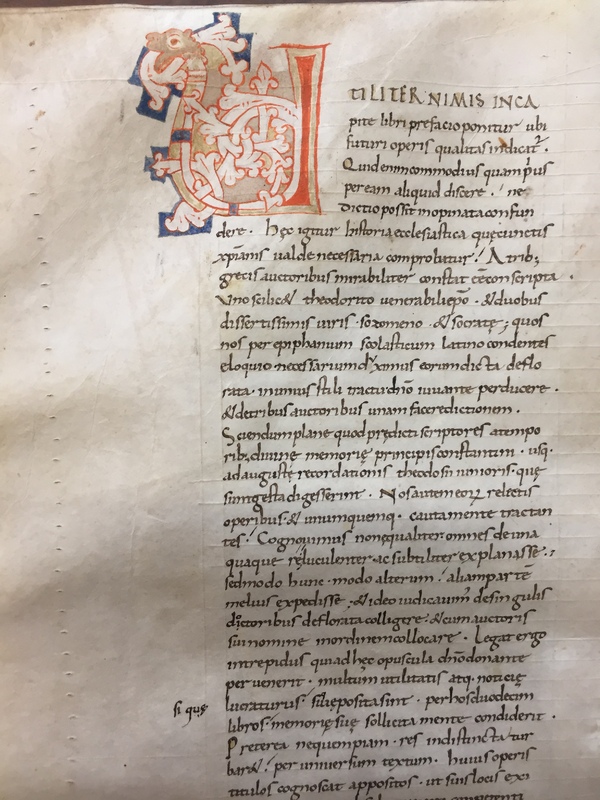 UTILITER NIMIS INCA
pite libri prefacio ponitur ubi
futuri operis qualitas indicat᷑.
Quid enim commodius quam prius
peream aliquid discere . ne
dictio possit inopinata confun
dere . hęc igitur historia ecclesiastica quę cunctis
xp̄ianis valde necessaria comprobatur . A trib;
grecis auctoribus mirabiliter constat ēē conscripta .
Uno scilic& theodorito venerabili ep̄o . & duobus
dissertissimis viris . sozomeno . & socrate ; quos
nos per epiphanium scolasticum latino condentes
eloquio necessarium duximus eorum dicta deflo
rata . in unius stili tractu dn̄o iuvante perducere .
& de tribus auctoribus unam facere dictionem .
Sciendum plane quod predicti scriptores a tempo
rib; divine memorię principis constantini . usq.
ad augustę recordationis theodosii iunioris . quę
sunt gesta digesserint . Nos autem eoꝝ relectis
operibus . & unumquemq. caute mente tractan
tes . Cognovimus non equaliter omnes de una
quaque re luculenter ac subtiliter explanasse . ;
sed modo hunc . modo alterum . aliam partē
melius expedisse . & ideo iudicavim᷑ de singulis
doctoribus deflorata colligere . & cum auctoris
sui nomine in ordinem collocare . Legat ergo
intrepidus qui ad hęc opuscula dn̄o donante
pervenerit . multum utilitatis atq. notitię
lucraturus . si quę
si lię posita sint . per hos duodecim
libros . memorię suę sollicita mente condiderit .
Preterea ne quempiam . res indistincta tur
bar& . per universum textum . huius operis
titulos cognoscat appositos . ut suis locis exi